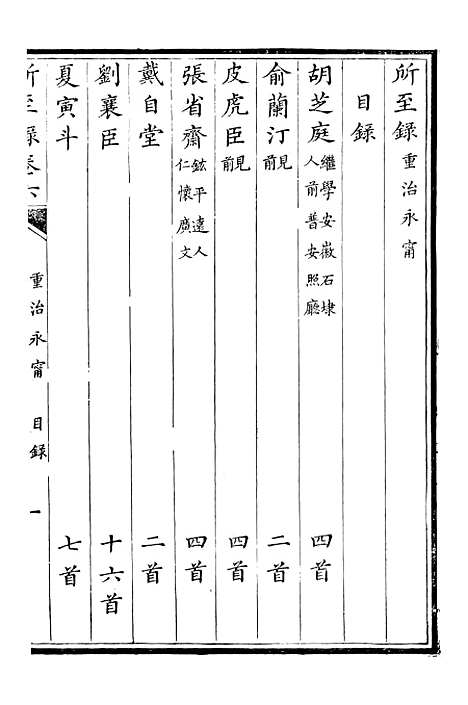 所至録重治永甯
目録
胡芝庭繼學安徽石埭人前普安照廳 四首
俞蘭汀見前 二首
皮虎臣見前 四首
張省齋鉉平遠人仁懷廣文 四首
戴自堂 二首
劉襄臣 十六首
夏寅斗 七首
所至録卷六 重治永甯 目録 一